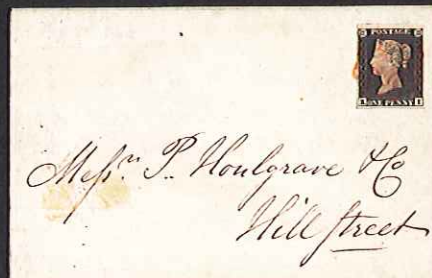 POSTAGE
ONE PENNY
Messrs. P. Houlgrave & Co
Hill Street